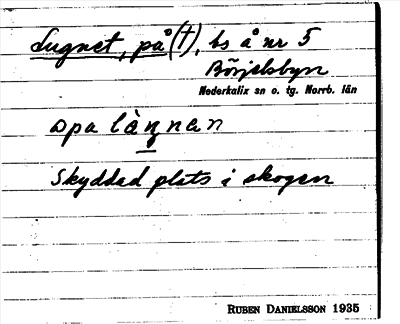 Lugnet, på (†), bs å nr 5
Börjelsbyn
Nederkalix sn o. tg. Norrb. län
opa làŋnan
Skyddad plats i skogen
RUBEN DANIELSSON 1935